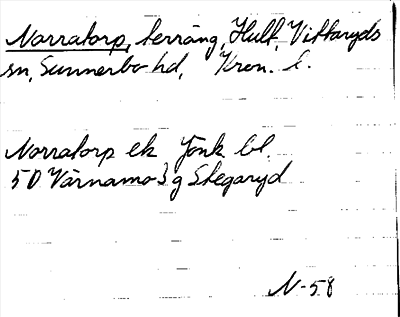 Norratorp, terräng, Hult, Vittaryds
sn, Sunnerbo hd, Kron. l.
Norratorp ek Jönk bl.
5D Värnamo 3g Skegaryd
N-58